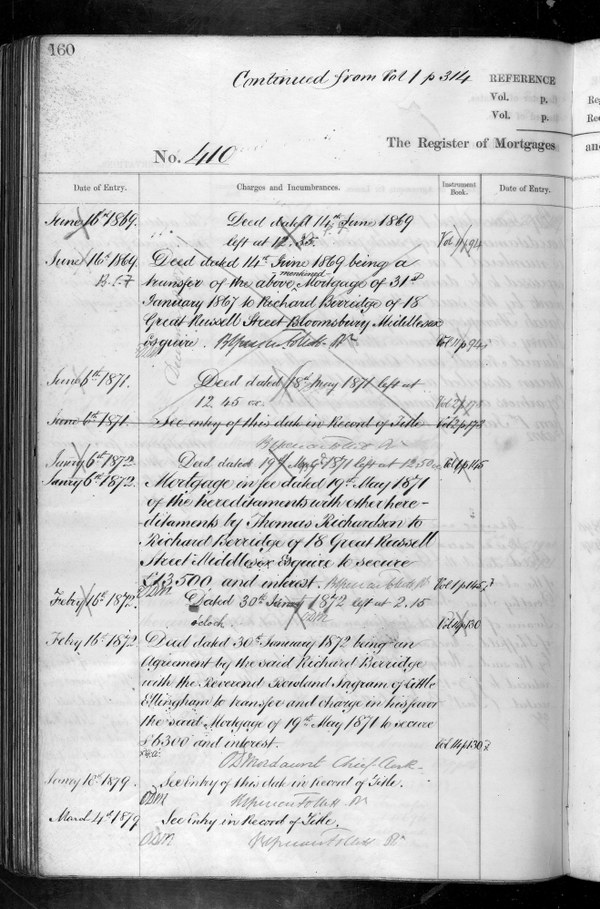 160
Continued from Vol 1 p 314
REFERENCE
Vol. p.
Vol. p.
The Register of Mortgages
No. 410
Date of Entry.
Charges and Incumbrances.
Instrument Book.
Date of Entry.
June 16th 1869.
Deed dated 14th June 1869
left at 12.35.
June 16th 1869
Deed dated 14th June 1869 being a
transfer of the above mentioned Mortgage of 31st
January 1867 to Richard Berridge of 18
Great Russell Street Bloomsbury Middlesex
Esquire.
June 6th 1871.
Deed dated 18th May 1871 left at
12.45 oc.
June 6th 1871.
See entry of this date in Record of Title
Janry 6th 1872.
Deed dated 19th May 1871 left at 12.50 oc
Janry 6th 1872.
Mortgage in fee dated 19th May 1871
of the hereditaments with other here-
ditaments by Thomas Richardson to
Richard Berridge of 18 Great Russell
Street Middlesex Esquire to secure
£13,500 and interest.
Vol 1 p 145
Febry 16th 1872.
Dated 30th Jany 1872 left at 2.15
o'clock.
Vol 14 p 130
Febry 16th 1872
Deed dated 30th January 1872 being an
Agreement by the said Richard Berridge
with the Reverend Rowland Ingram of Little
Ellingham to transfer and charge in his favor
the said Mortgage of 19th May 1871 to secure
£6300 and interest.
Vol 14 p 130
Chief Clerk
Janry 10th 1879.
See Entry of this date in Record of Title.
March 4th 1879
See Entry in Record of Title.